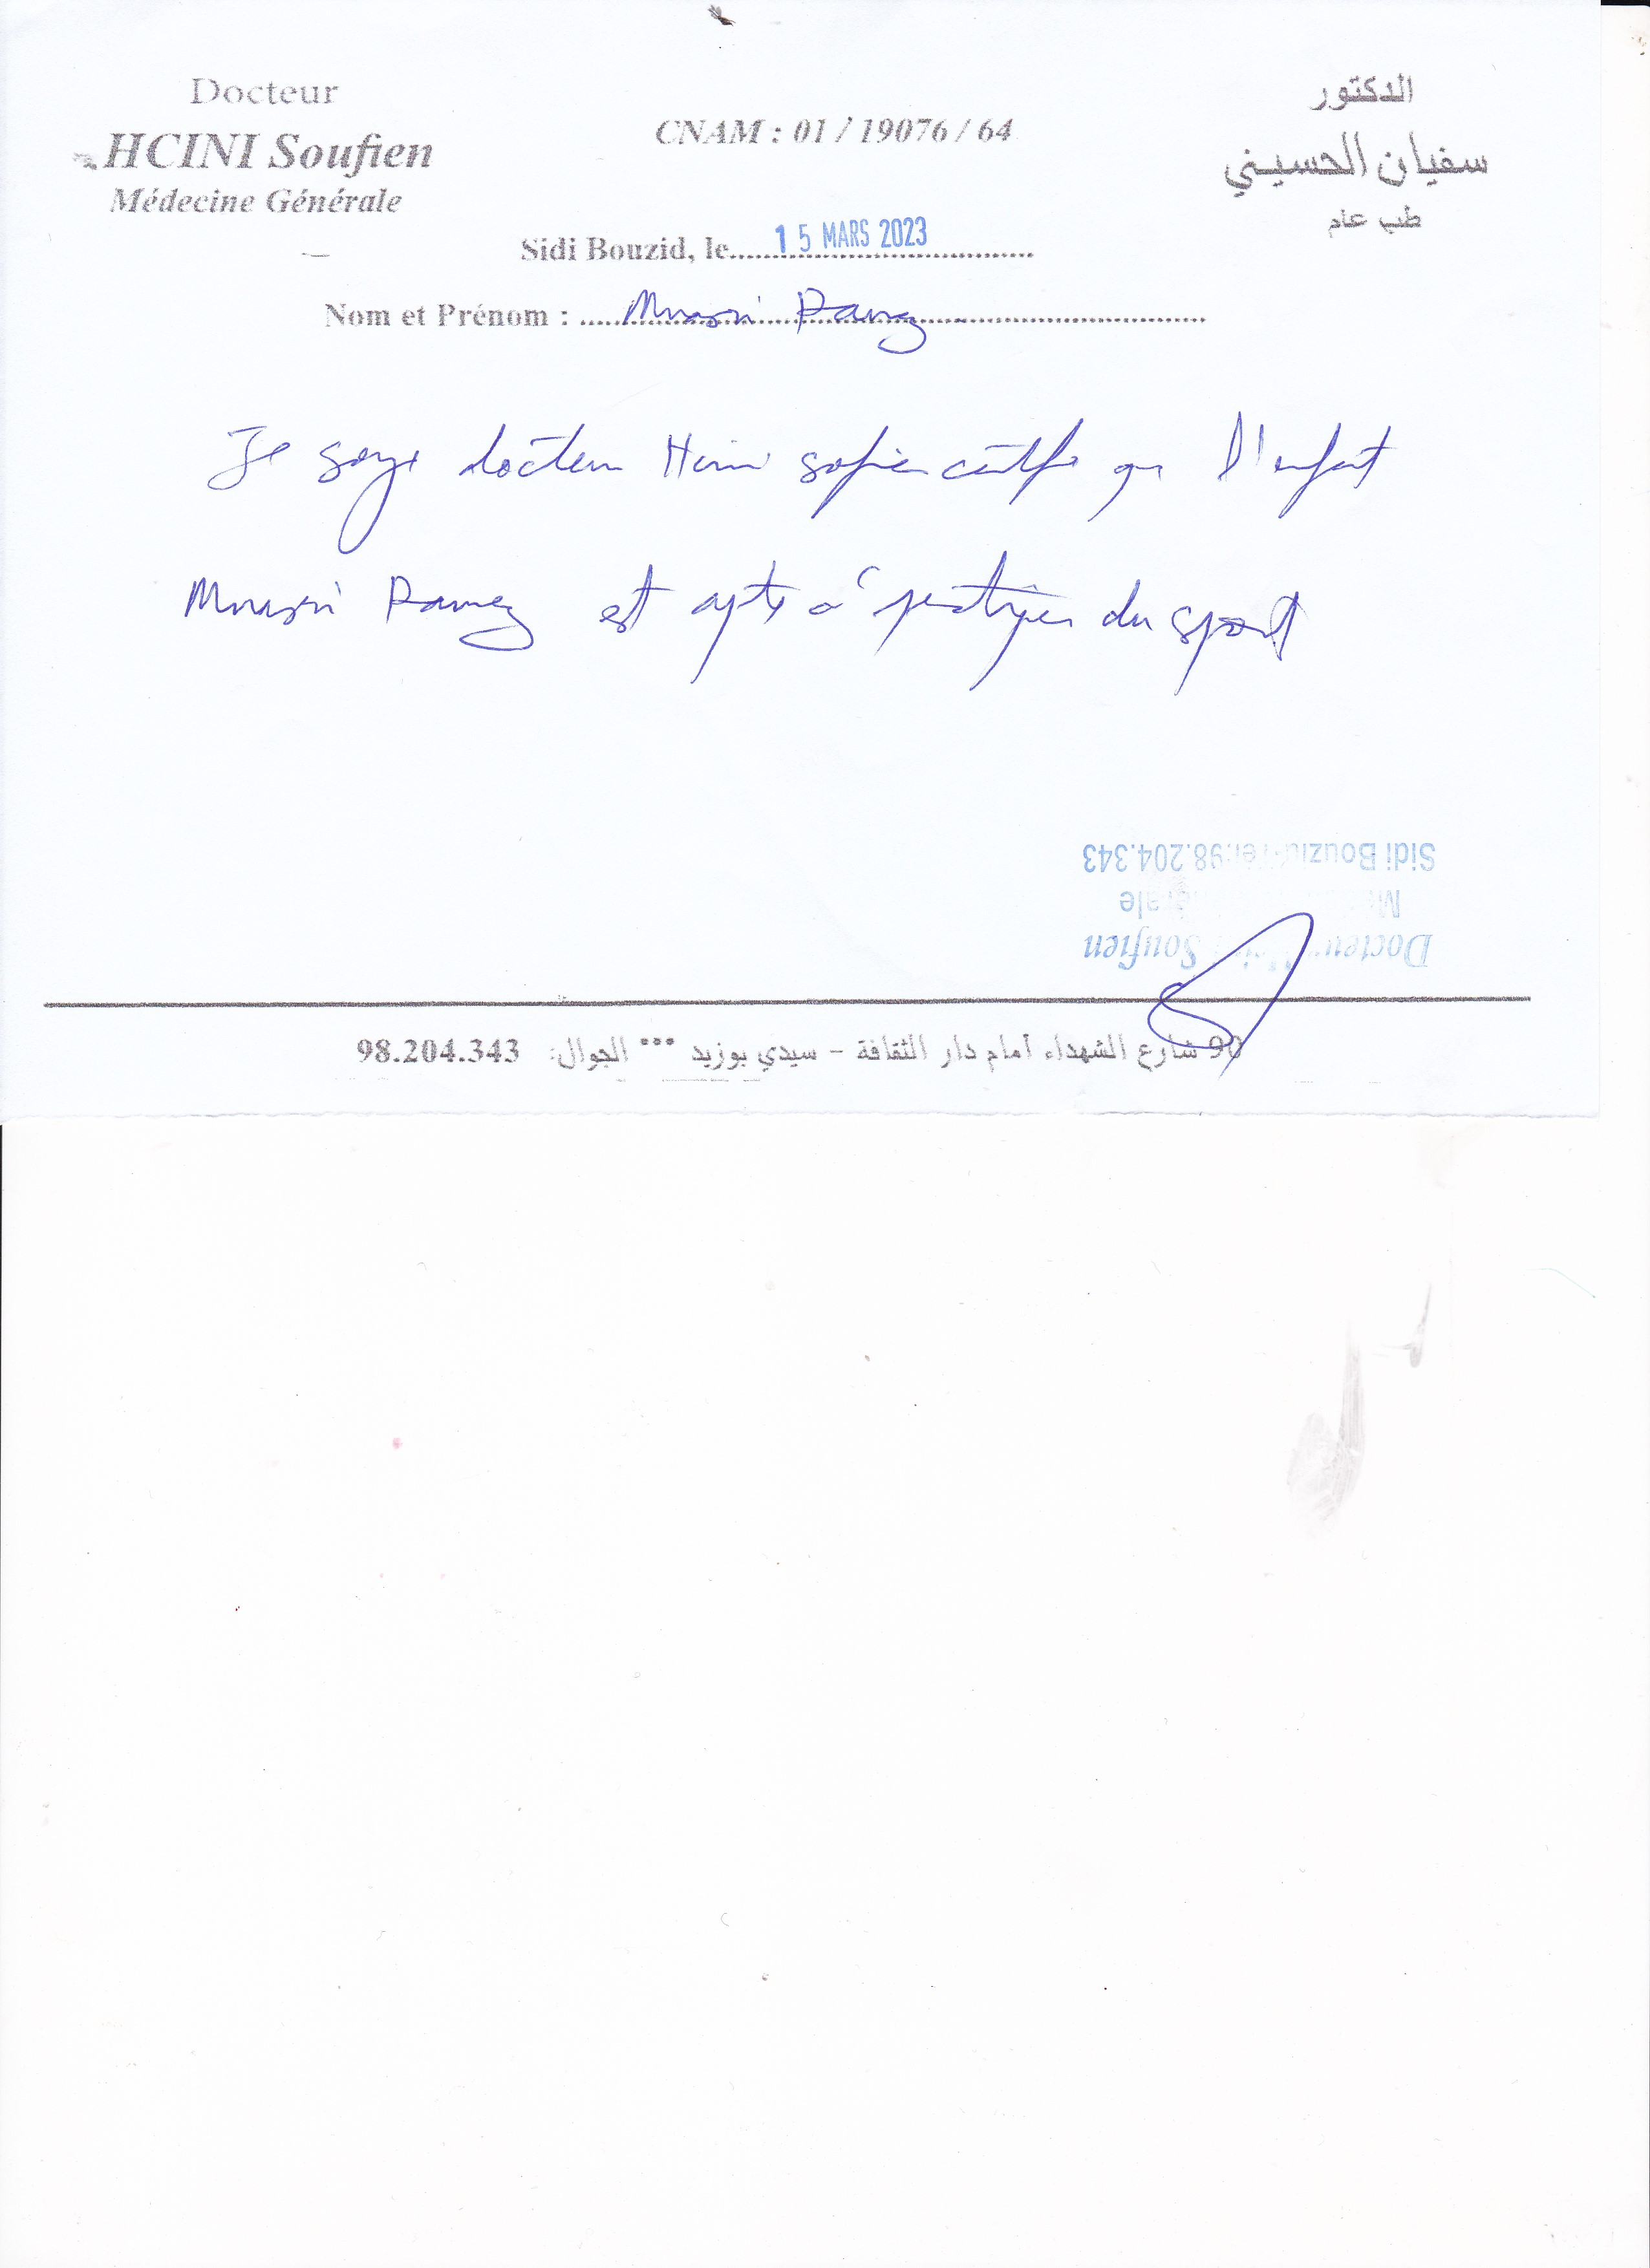 Docteur
HCINI Soufien
Médecine Générale
CNAM : 01 / 19076 / 64
الدكتور
سفيان الحسيني
طب عام
Sidi Bouzid, le 15 MARS 2023
Nom et Prénom : Mnasri Ramez
Je docteur Hcini sofien certifie que l'enfant
Mnasri Ramez est apte à pratiquer du sport
Docteur Soufien
Sidi Bouzid 98.204.343
90 شارع الشهداء أمام دار الثقافة - سيدي بوزيد *** الجوال: 98.204.343